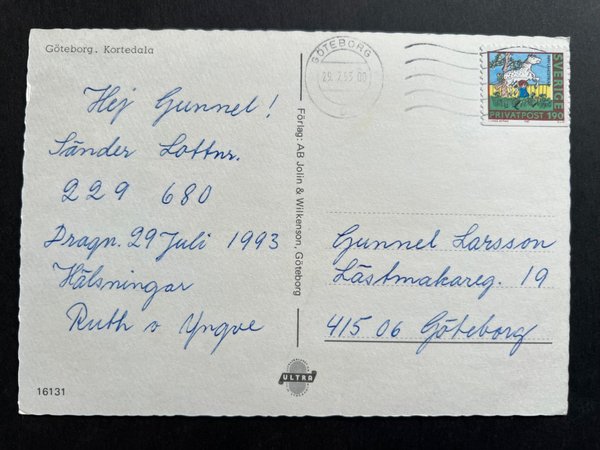 Göteborg. Kortedala
Hej Gunnel!
Sänder Lottnr.
229 680
Dragn. 29 Juli 1993
Hälsningar
Ruth o Yngve
16131
Förlag: AB Jolin & Wilkenson, Göteborg
ULTRA
GÖTEBORG
SVERIGE
PRIVATPOST 190
Gunnel Larsson
Lästmakareg. 19
415 06 Göteborg